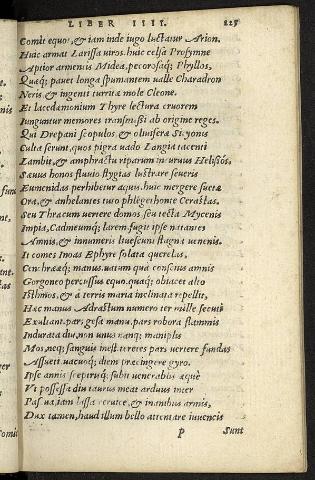 LIBER IIII. 225
Comit equos, & iam inde iugo luctatur Arion.
Huic armat Larissa uiros, huic celsa Prosymne
Aptior armentis Midea, pecorosaq; Phyllos,
Quæq; pauet longa spumantem ualle Charadron
Neris & ingenti turrita mole Cleone.
Et lacedæmonium Thyre lectura cruorem
Iunguntur memores transmissi ab origine reges.
Qui Drepani scopulos, & oliuiferæ Sicyonis
Culta serunt, quos pigra uado Langia tacenti
Lambit, & amphractu riparum incuruus Helisos,
Sæuus honos fluuio stygias lustrare seueris
Eumenidas perhibetur aquis. huic mergere suetæ
Ora, & anhelantes two phlegethonte Cerastas.
Seu Thracum uertere domos, seu tecta Mycenis
Impia, Cadmeumq; larem. fugit ipse natantes
Amnis, & innumeris liuescunt stagna uenenis.
It comes Inoas Ephyre solata querelas,
Cenchreæq; manus. uatum qua conscius amnis
Gorgoneo percussus equo. quaq; obiacet alto
Isthmos, & a terris maria inclinata repellit.
Hæc manus Adrastum numero ter mille secuti
Exultant. pars gesa manu, pars robora flammis
Indurata diu, non unus nanq; maniplis
Mos, neq; sanguis inest. teretes pars uertere fundas
Assueti uacuoq; diem præcingere gyro.
Ipse annis sceptrisq; subit uenerabilis æquè
Vt possessa diu taurus meat arduus inter
Pascua, iam lassa ceruice, & inanibus armis,
Dux tamen, haud illum bello attentare iuuencis
P Sunt